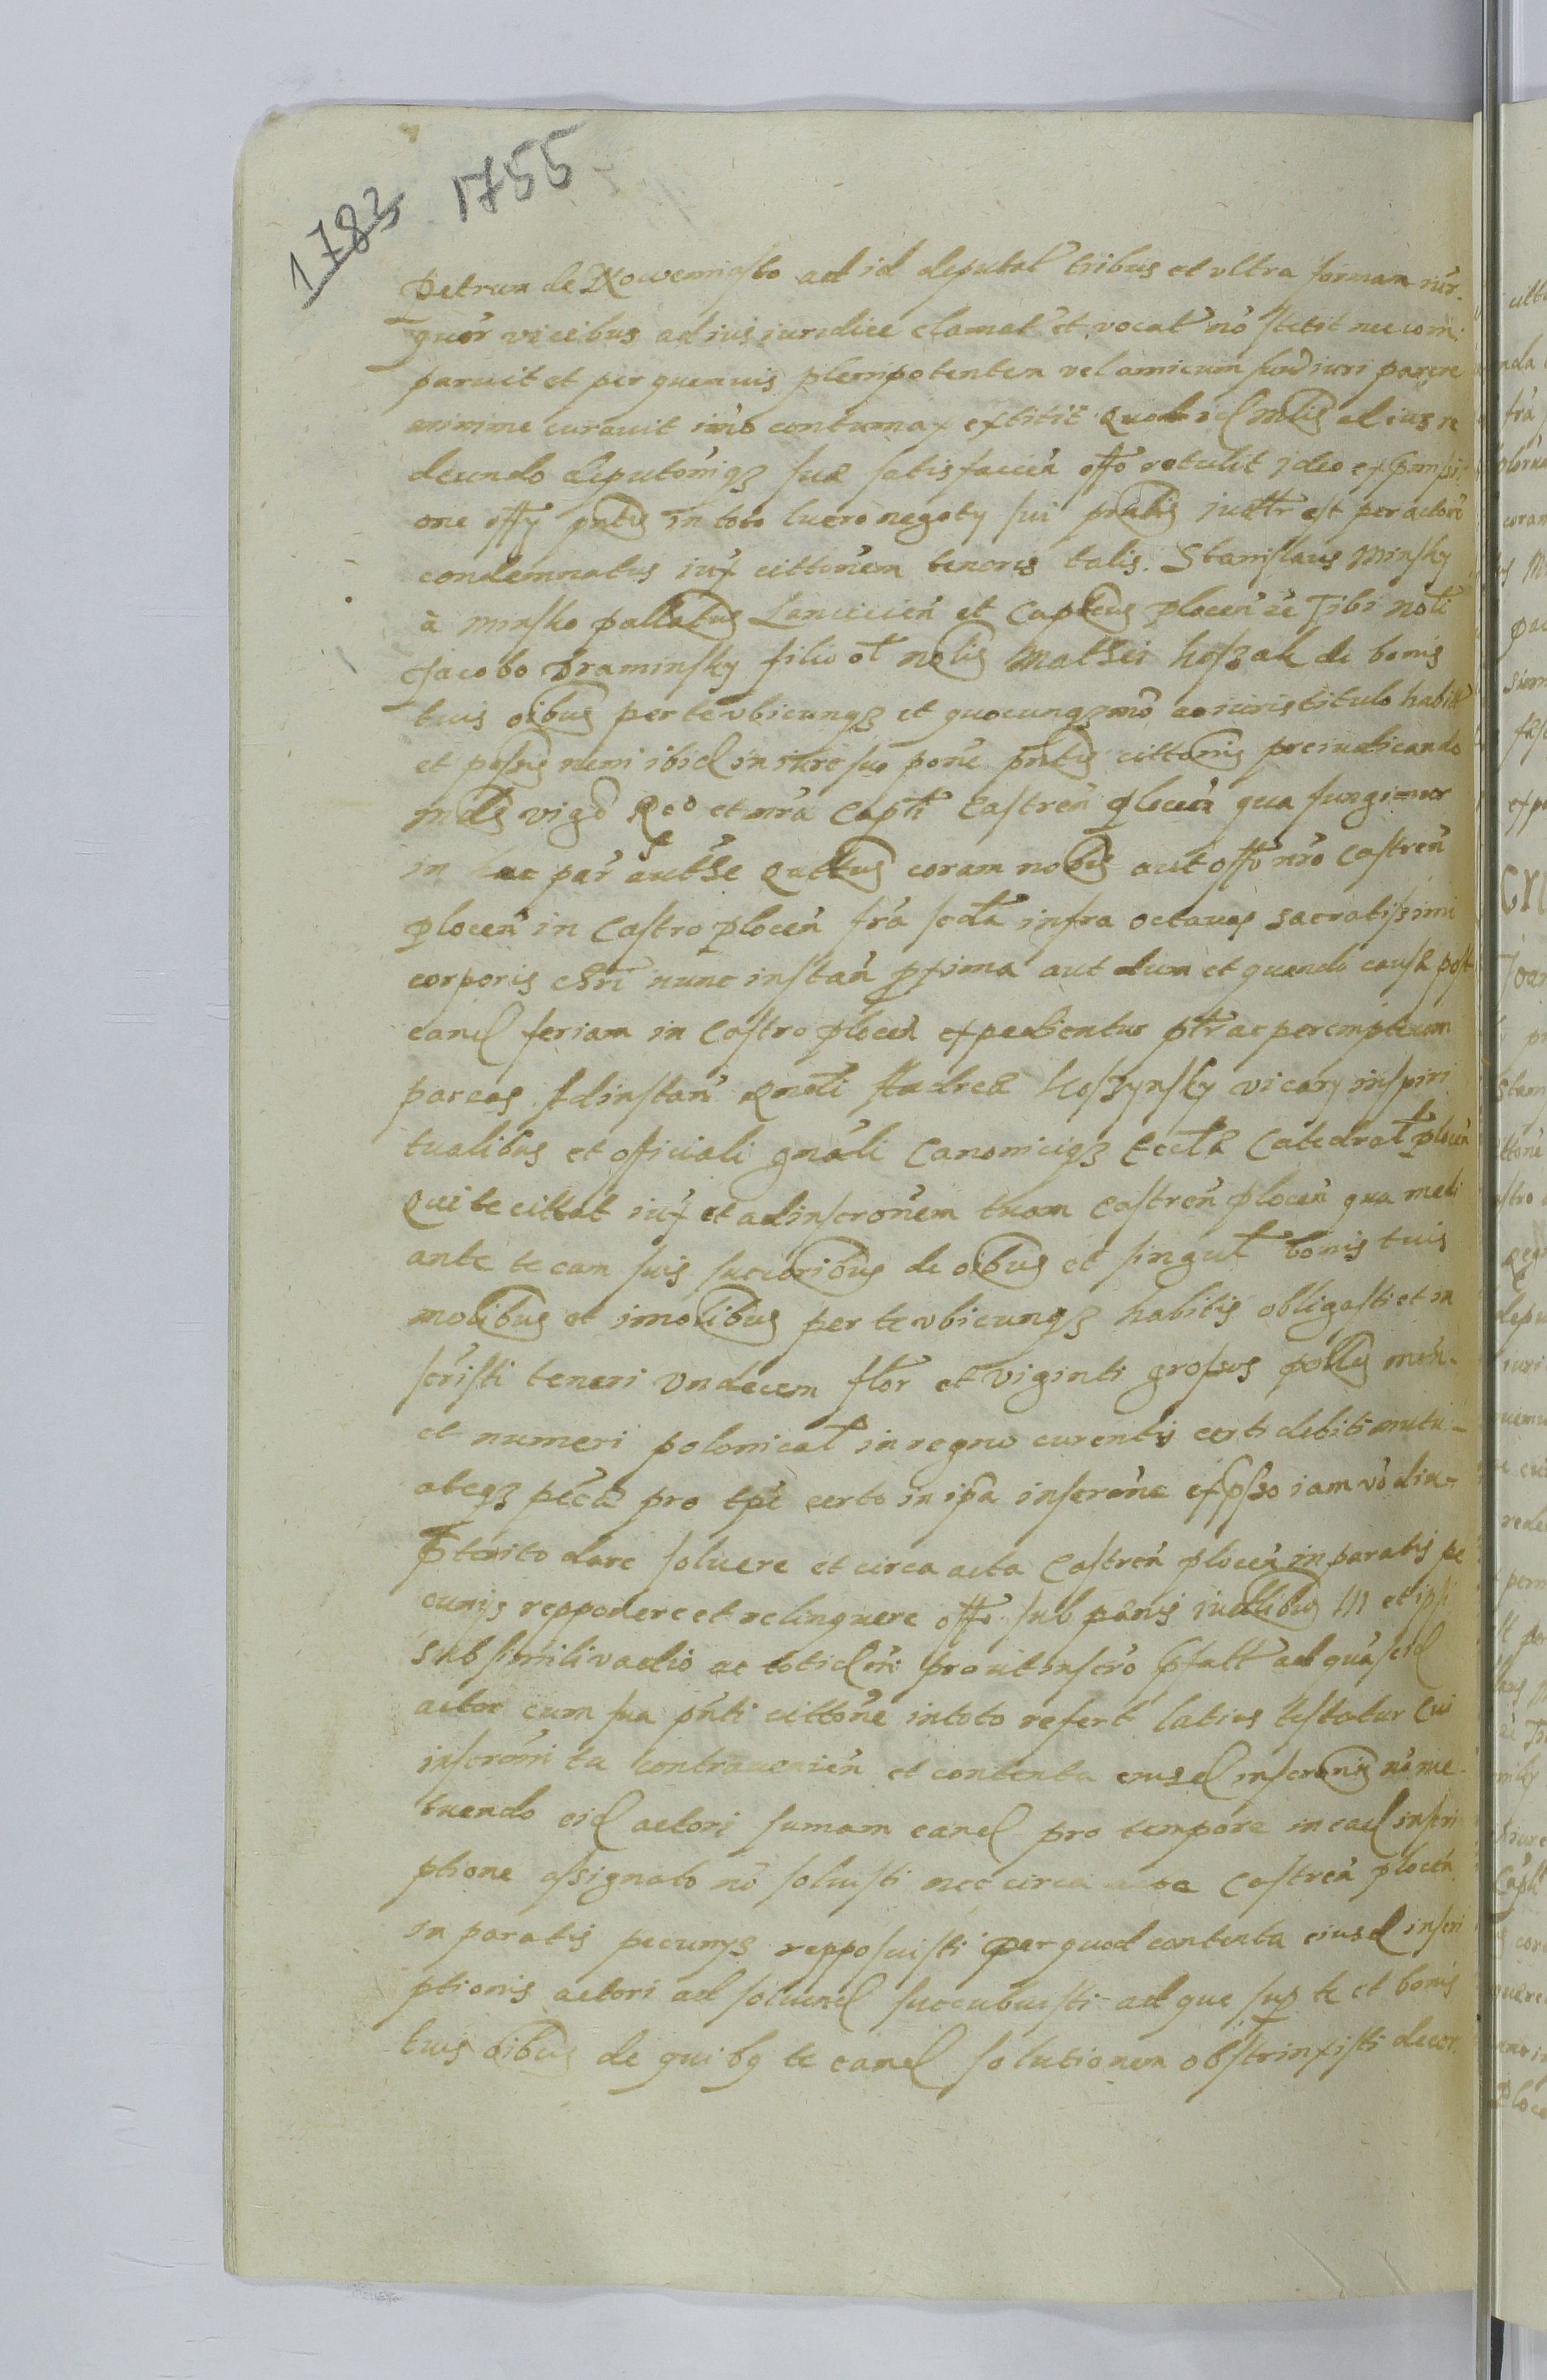 1783 1755
Petrum de Nowemiasto ad id deputat tribus et vltra forman iur.
quor vicibus ad ius iuredice clamat et vocat no stetit nec com.
paruit et per quemuis plenipotentem vel amicum suu iuri parere
minime curauit imo contumax extitit Quod id mlis ad ius re
deundo deputoniqz suae satisfacien offo retulit Ideo ex
one offy pntis in toto lucro negoty sui pntis est per actore
condemnatus iux cittonem tenoris talis. Stanislaus Minsky
à Minsko pallatus Lancicien et Capteus plocen ze Tibi noli
Jacobo Draminsky filio ol nolis Mathei koszak de bonis
tuis oibus per te vbicunqz et quocunqz mo ac iuris titulo habit
et possis nemi ibid in iure suo pone pntis cittonis preiudicando
mds vigo Reo et nra Capti Castren plocen qua fungimur
in hac par authe qattus coram nobis aut offo nro Castren
plocen in Castro plocen fra scda infra octauas Sacratissimi
corporis Chri nunc instan pxima aut dum et quando causae post
eand feriam in Castro plocen expedientur ptr ac peremptorem
pareas Ad instan Andreae koszynsky vicary in spiri
tualibus et oficiali gnali Canoniciqz Eccl Catedrat plocen
Qui te cittat iux et ad inscronem tuam Castren plocen qua medi
ante te eam suis succoribus de oibus et singul bonis tuis
molibus et imolibus per te vbicunqz habitis obligasti et in
scristi teneri vndecem flor et viginti grossos pollis mon.
et numeri polonical in regno curentis certi debiti mutu-
ateqz pecu pro tpe certo in ipa inscrone expsso iam vo diu-
pterito dare soluere et circa acta Castren plocen in paratis pe
cunijs repponere et relinquere offo sub panis iudlibus III et ipsi
sub simili vadio ac totid prout inscro ad quascid
actor cum sua pnti cittone in toto refert latius testatur Cui
inscroni tu contrauenien et contenta eiusd inscronis no me-
tuendo eid actori sumam eand pro tempore in ead inscri
ptione assignato no soluisti nec circa acta Castren plocen
in paratis pecunys repposuisti per quod contenta eiusd inscri
ptionis actori ad soluend succubuisti ad que sup te et bonis
tuis oibus de quibq te eand solutionem obstrinxisti decer.